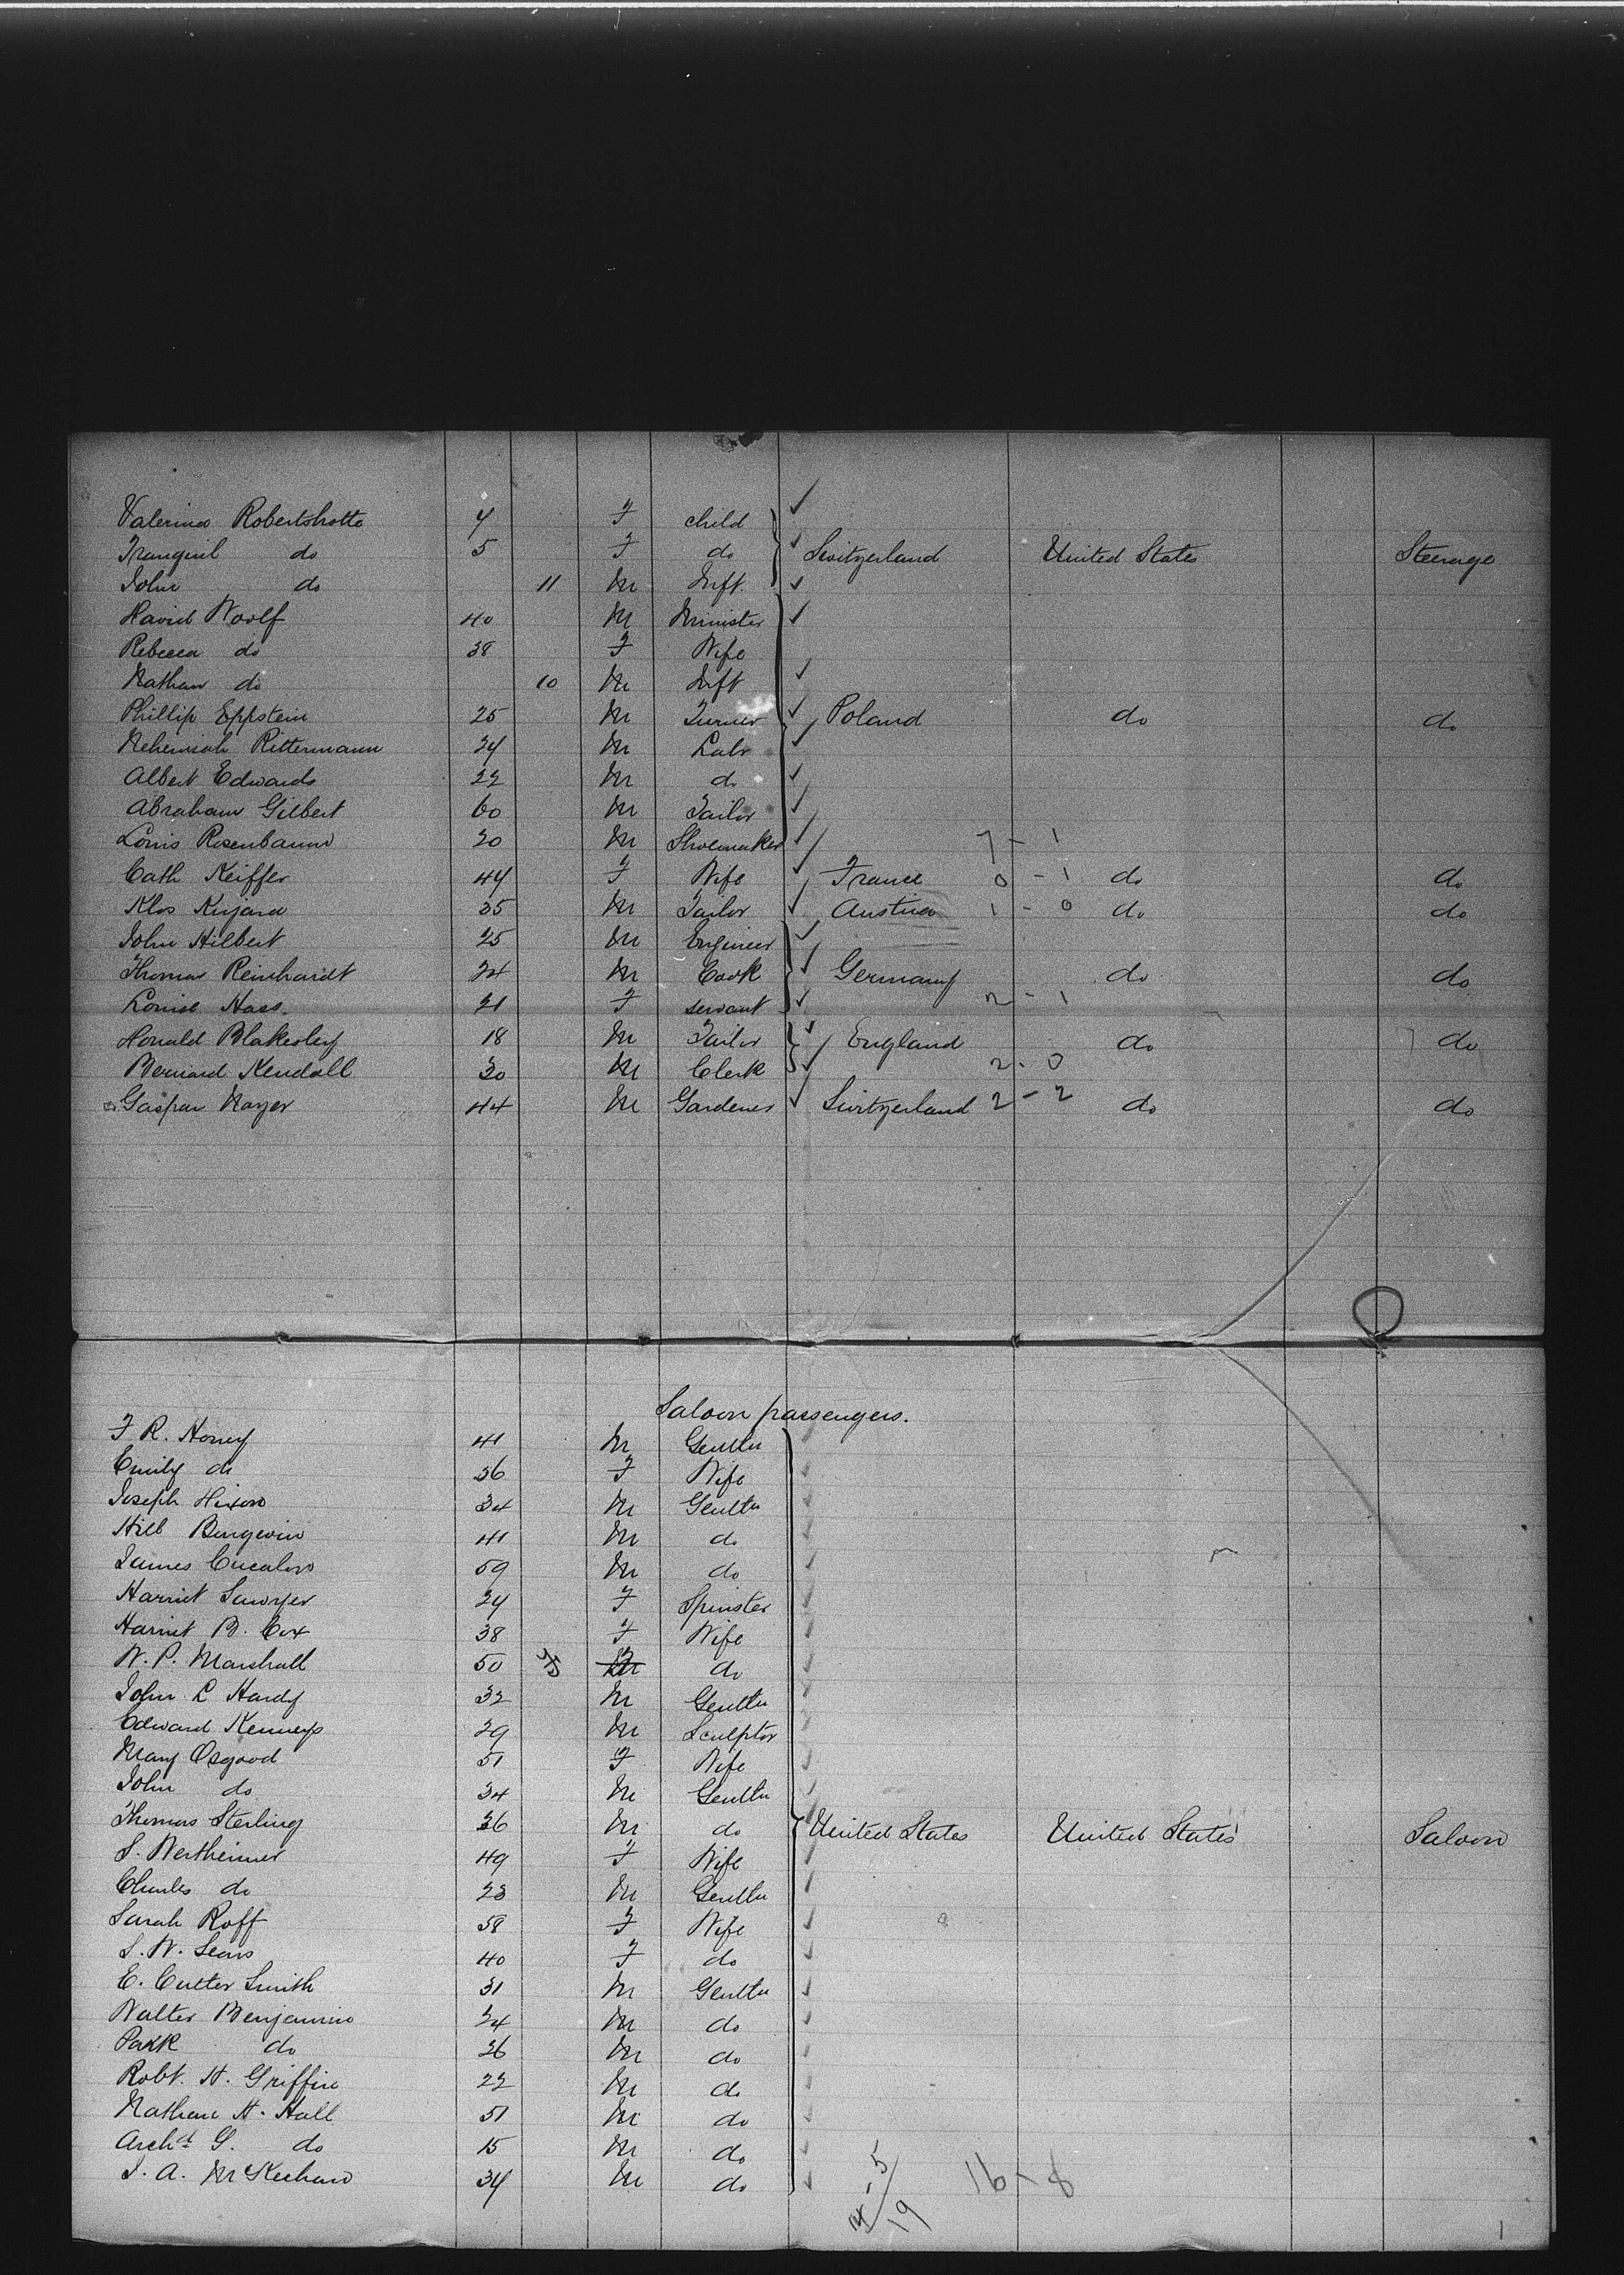 Valerina Robertshotte 4 F child
Tranquil do 5 F do Switzerland United States Steerage
John do 11 M Inft.
David Woolf 40 M Minister
Rebecca do 38 F Wife
Nathan do 10 M Inft
Phillip Eppstein 25 M Turner Poland do do
Nehemiah Rittermann 24 M Labr
Albert Edwards 22 M do
Abraham Gilbert 60 M Tailor
Louis Rosenbaum 20 M Shoemaker 7 - 1
Cath Keiffer 44 F Wife France 0 - 1 do do
Klos 35 M Tailor Austria 1 - 0 do do
John Hilbert 25 M Engineer
Thomas Reinhardt 24 M Cook Germany do do
Louise Haas 21 F servant 2 - 1
Donald Blakesley 18 M Tailor England do do
Bernard Kendall 30 M Clerk 2 - 0
Gaspar Nayer 44 M Gardener Switzerland 2 - 2 do do
Saloon passengers.
F R. Honey 41 M Gentln
Emily do 36 F Wife
Joseph Hixon 34 M Gentln
Hill 41 M do
James 59 M do
Harriet Sawyer 24 F Spinster
Harriet B. Cox 38 F Wife
W. P. Marshall 50 do
John L Hardy 32 M Gentln
Edward Kemeys 29 M Sculptor
Mary Osgood 51 F Wife
John do 34 M Gentln
Thomas Sterling 36 M do United States United States Saloon
S. Wertheimer 49 F Wife
Charles do 23 M Gentln
Sarah Roff 58 F Wife
S. W. Sears 40 F do
E. Cutter Smith 31 M Gentln
Walter Benjamin 24 M do
Park do 26 M do
Robt. H. Griffin 22 M do
Nathan H. Hall 51 M do
Archd. G. do 15 M do
J. A. McKeehan 34 M do
16 - 8
19